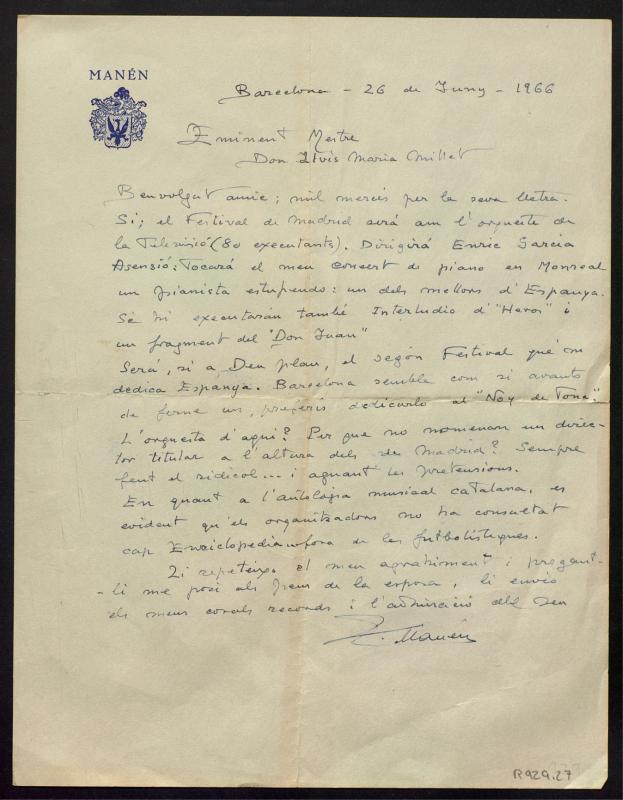 MANÉN
Barcelona - 26 de Juny - 1966
Eminent Mestre
Don Lluís Maria Millet
Benvolgut amic; mil mercés per la seva lletra.
Si; el Festival de Madrid será am l'orquesta de
la Televisió (80 executants). Dirigirá Enric García
Asensió: Tocará el meu Concert de piano en Monreal
un pianista estupendo: un dels mellors d'Espanya.
Se hi executarán també Interludio d'"Heros" i
un fragment del "Don Juan"
Será, si a Deu plau, el según Festival qué'm
dedica Espanya. Barcelona sembla com si avants
de ferne un, preferís dedicarlo al "Noy de Tona".
L'orquesta d'aqui? Per que no nomenam un direc-
tor titular a l'altura dels de Madrid? Sempre
fent el ridícol... i aguant les pretensions.
En quant a l'antologia musical catalana, es
evident qu'els organitzadors no ha consultat
cap Enciclopedia fora de les futbolístiques.
Li repeteixo el meu agraiment i pregant-
-li me posi als peus de la esposa, li envío
els meus corals records i l'admiració del seu
J. Manén
R929.27